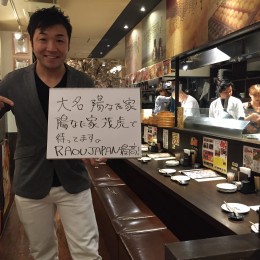 大名 陽なた家
陽なた家 茂虎で
待ってます。
RAOU JAPAN 最高!